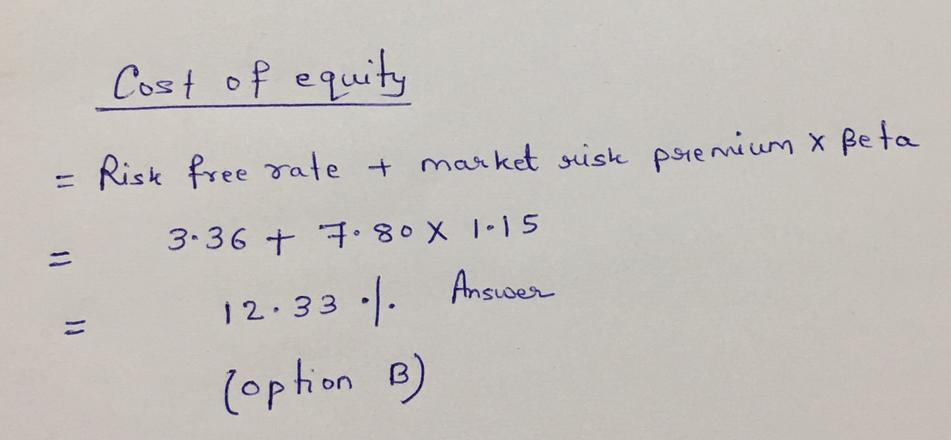 Cost of equity
= Risk free rate + market risk premium x Beta
= 3.36 + 7.80 x 1.15
= 12.33 % Answer
(option B)